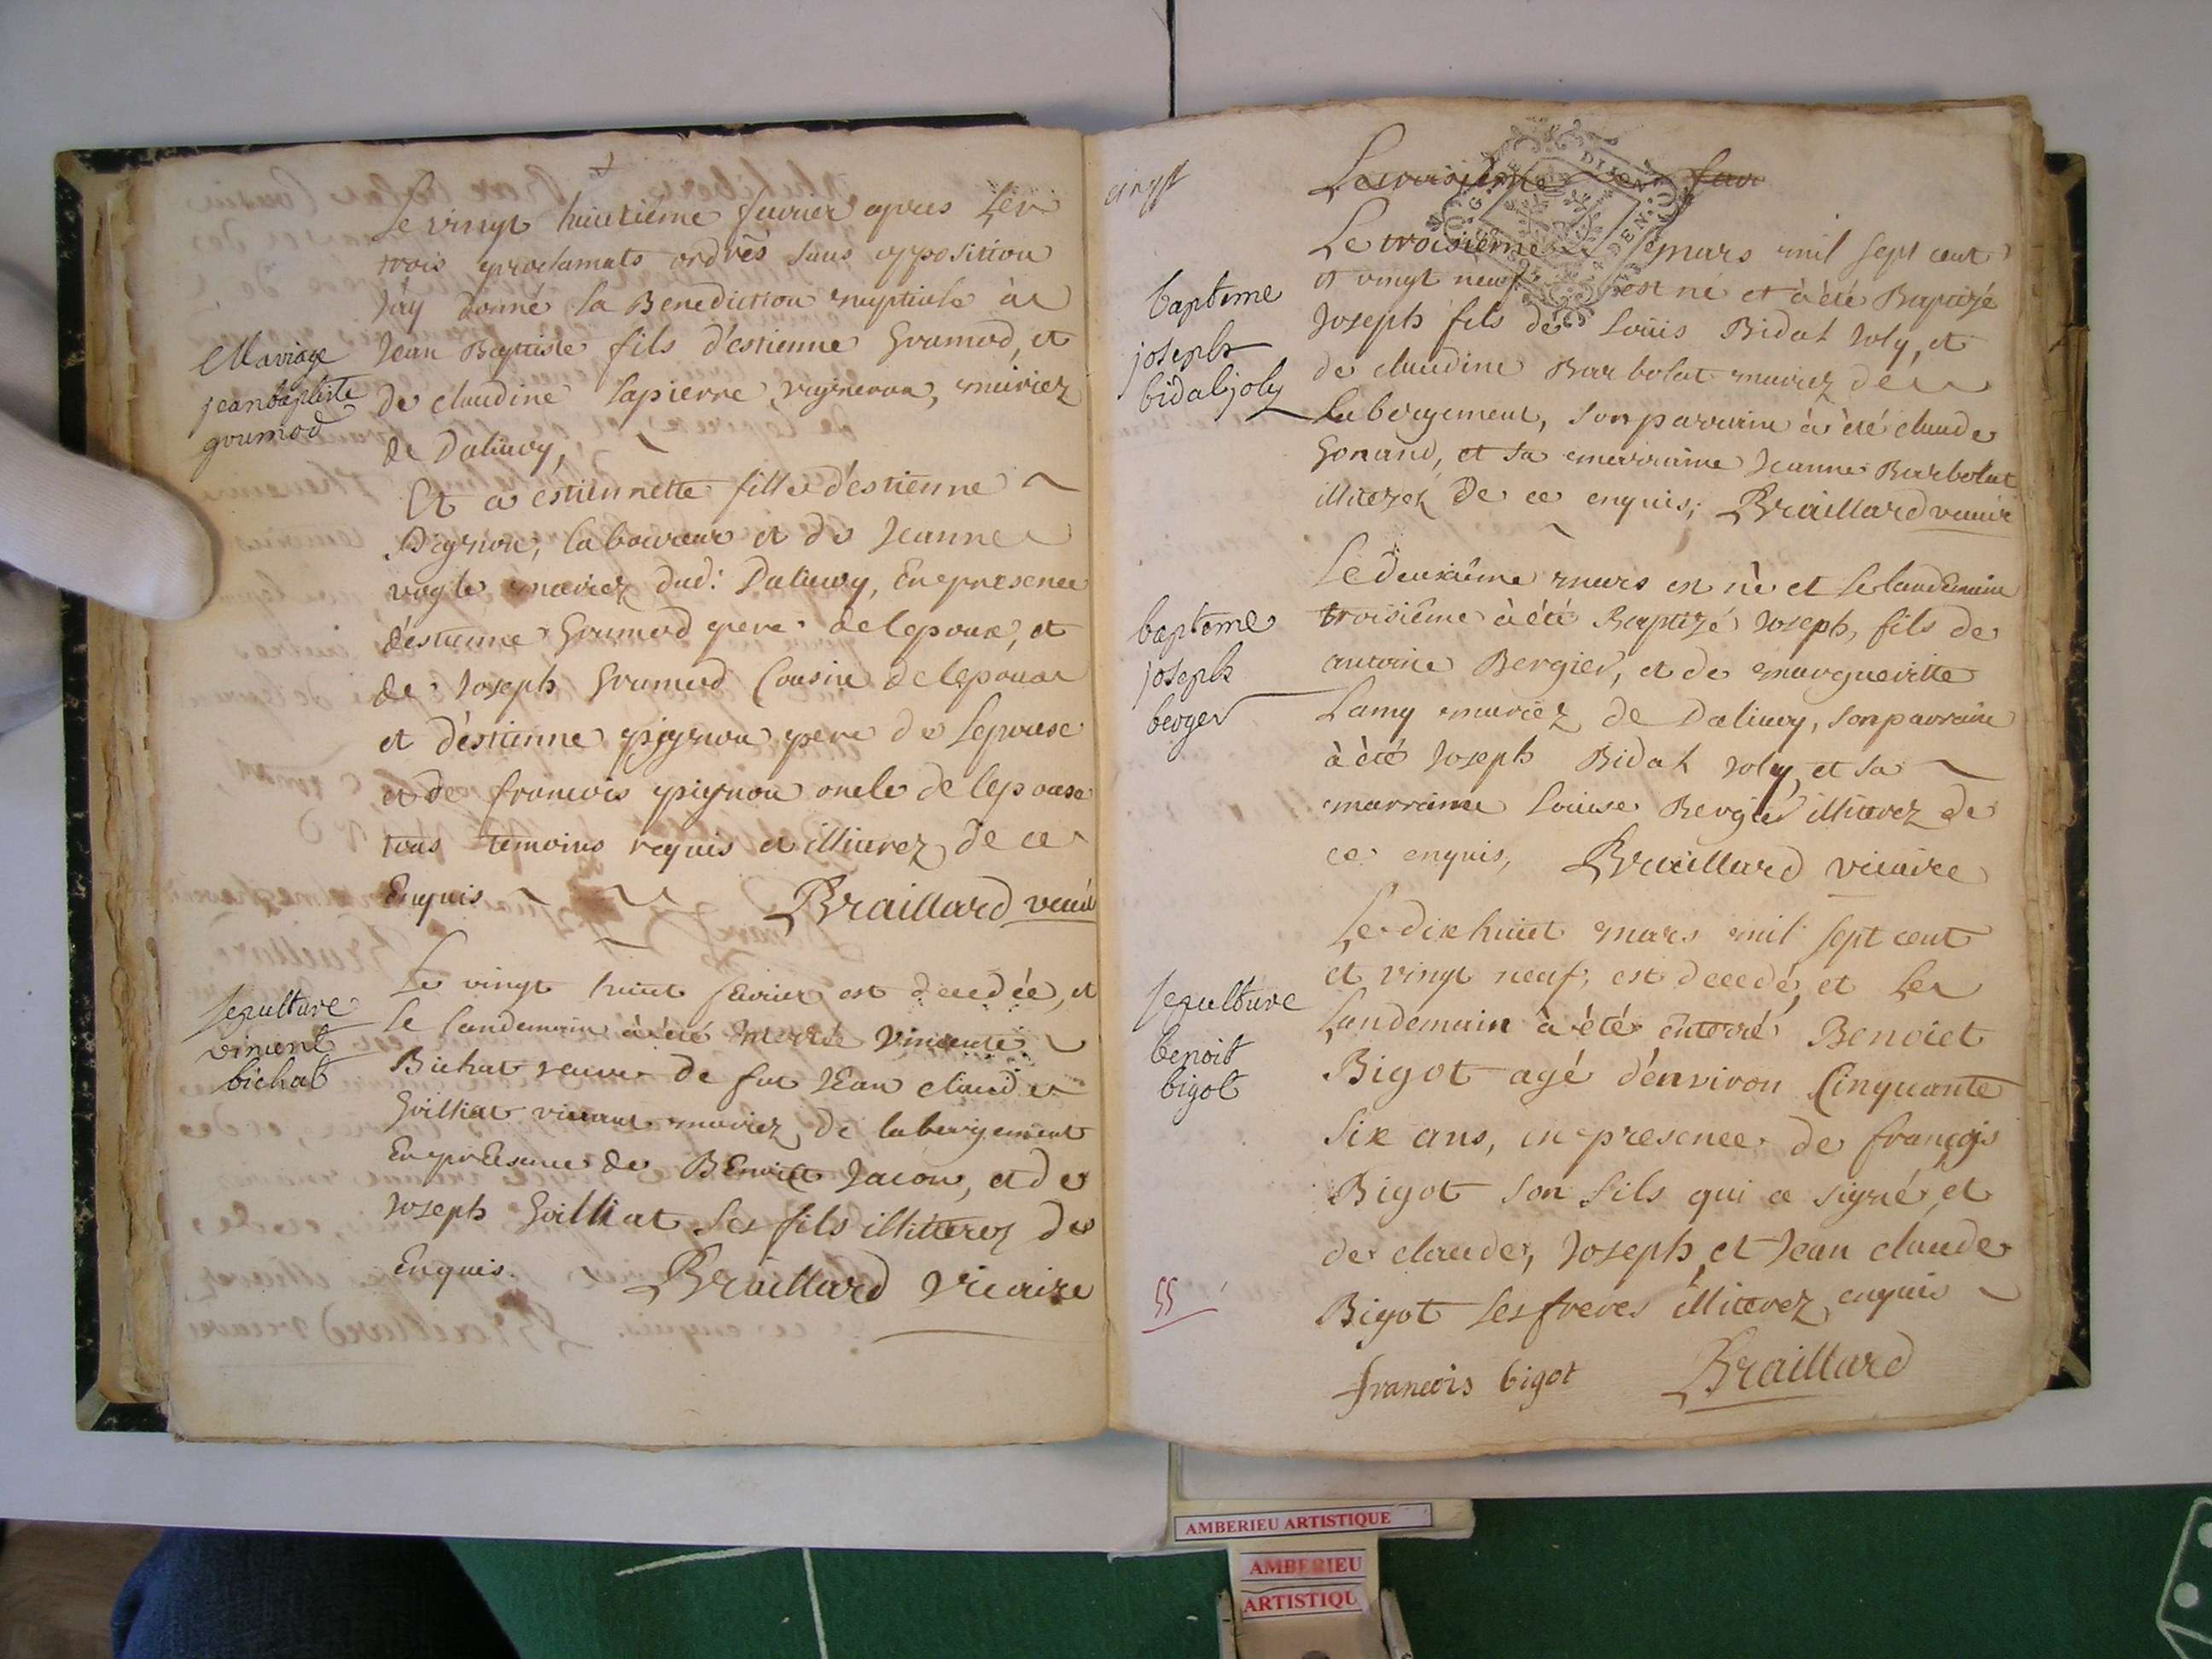 Le vingt huitiéme fevrier apres Les
trois proclamats ordrés sans opposition
J'ay donné la Benediction nuptiale à
Mariage
jeanbaptiste
groumod
Jean Baptiste fils d'estienne Groumod, et
de claudine Lapierre vigneron, mariez
de Dalivoy,
Et a estiennette fille d'estienne
Pignon, laboureur et de Jeanne
mariez dud: Dalivoy, En presence
d'estienne Groumod pere de lepoux, et
de Joseph Groumod Cousin de lepoux
et d'estienne pignon pere de Lepouse
et de francois pignon oncle de lepouse
tous temoins requis et illiterez de ce
Enquis Braillard vicaire
sepulture
vincent
bichat
Le vingt huict fevrier est decedée, et
le landemain à été enterré vincente
Bichat veuve de fut Jean claude
Goilliat vivant mariez de labergement
En presence de Benoict Jacon, et de
Joseph Goilliat Ses fils illitterez de
Enquis. Braillard vicaire
vingt
Le troisiéme
Le troisiéme mars mil sept cent
bapteme
joseph
bidaljoly
et vingt neuf est né et à été Baptizé
Joseph fils de Loüis Bidal Joly, et
de claudine Barbolat mariez de
Labergement, son parrain à été claude
Gonand, et sa marraine Jeanne Barbolat
illiterez de ce enquis, Braillard vicaire
baptome
joseph
berger
Le deuxiéme mars en né et le landemain
troisiéme à été Baptizé Joseph, fils de
antoine Bergier, et de margueritte
Lamy mariez de Dalivoy, son parrain
à été Joseph Bidal Joly, et sa
marraine Louise Bergier illiterez de
ce enquis, Braillard vicaire
sepulture
benoit
bigot
Le dix huict mars mil sept cent
et vingt neuf, est decedé, et Le
Landemain à été enterré Benoict
Bigot agé d'environ Cinquante
Six ans, en presence de françois
Bigot son fils qui a signé, et
de claude, Joseph et Jean claude
Bigot ses freres illiterez enquis
55
francois bigot Braillard
DIJON
AMBERIEU ARTISTIQUE
AMBERIEU
ARTISTIQU